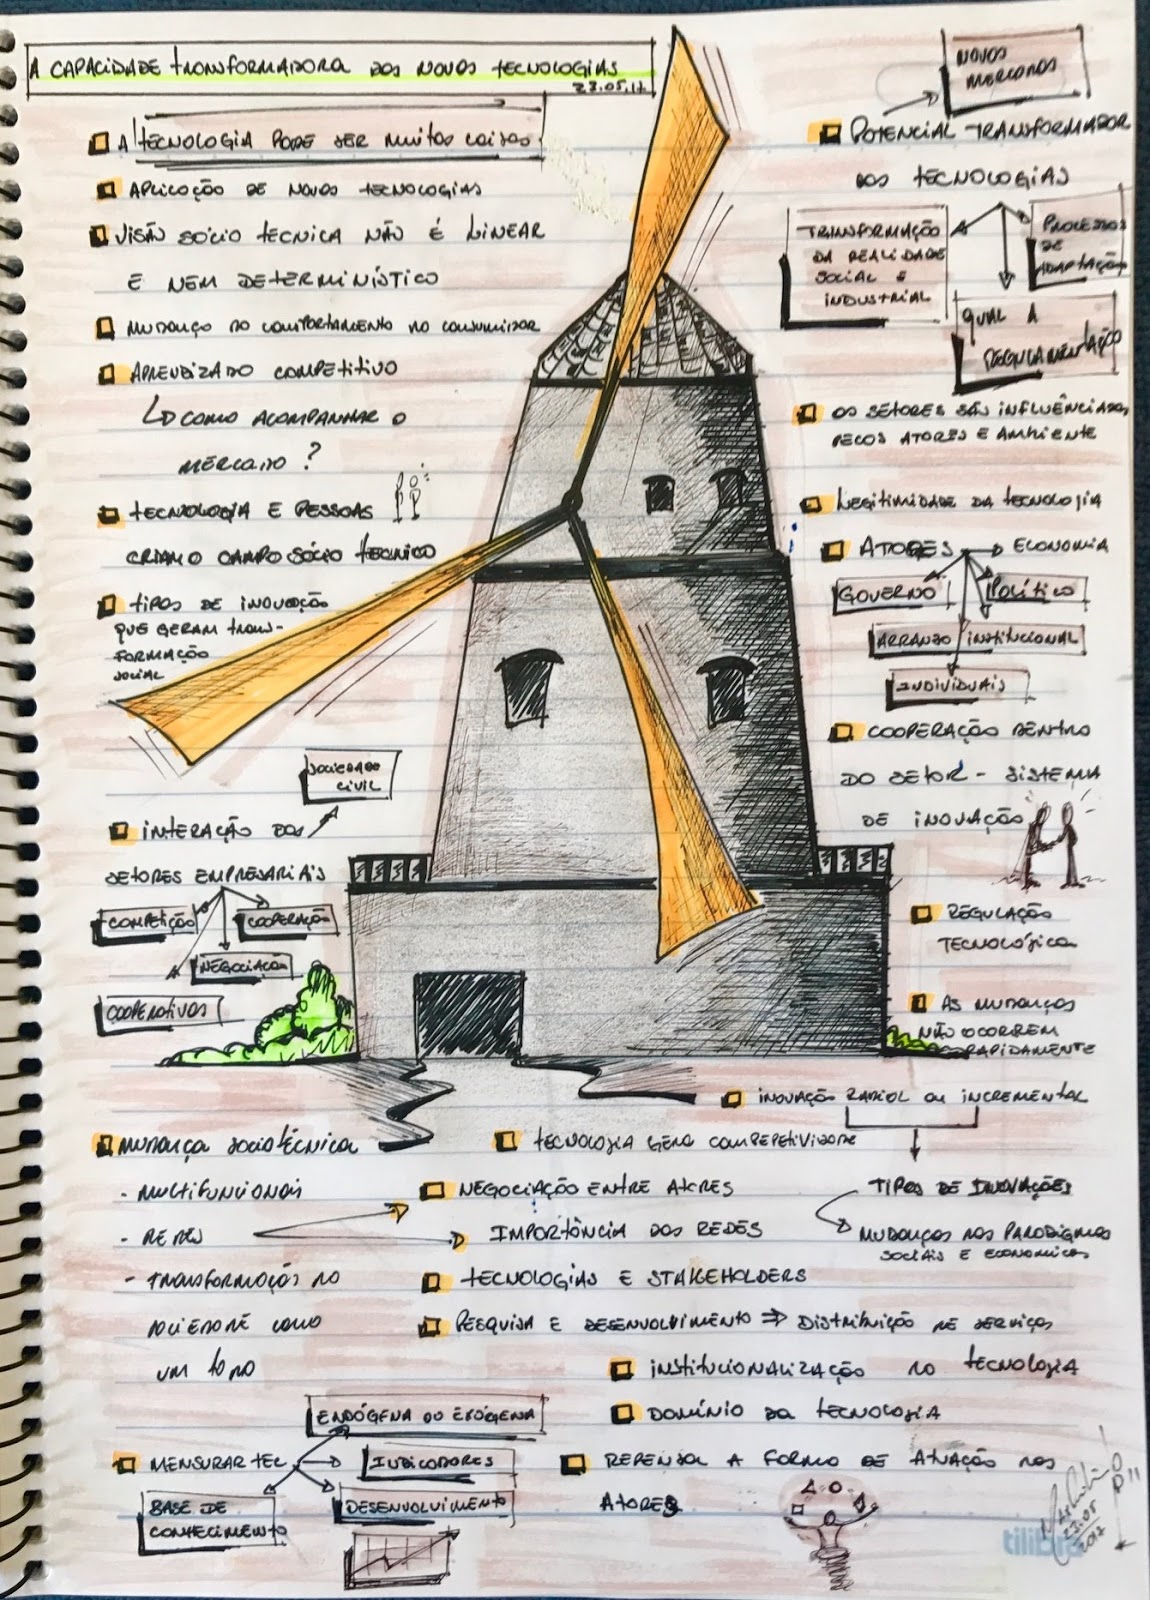 A CAPACIDADE TRANSFORMADORA DAS NOVAS TECNOLOGIAS
23.05.17
A TECNOLOGIA PODE SER MUITAS COISAS
APLICAÇÃO DE NOVAS TECNOLOGIAS
VISÃO SÓCIO TECNICA NÃO É LINEAR
E NEM DETERMINÍSTICO
MUDANÇA NO COMPORTAMENTO NO CONSUMIDOR
APRENDIZADO COMPETITIVO
COMO ACOMPANHAR O
MERCADO ?
TECNOLOGIA E PESSOAS
CRIAM O CAMPO SÓCIO TECNICO
TIPOS DE INOVAÇÃO
QUE GERAM TRANS-
FORMAÇÃO
SOCIAL
SOCIEDADE
CIVIL
INTERAÇÃO DOS
SETORES EMPRESARIAIS
COMPETIÇÃO
COOPERAÇÃO
NEGOCIAÇÃO
COOPERATIVAS
NOVOS
MERCADOS
POTENCIAL TRANSFORMADOR
DAS TECNOLOGIAS
TRANSFORMAÇÃO
DA REALIDADE
SOCIAL E
INDUSTRIAL
PROCESSOS
DE
ADAPTAÇÃO
QUAL A
REGULAMENTAÇÃO
OS SETORES SÃO INFLUÊNCIADOS
PELOS ATORES E AMBIENTE
LEGITIMIDADE DA TECNOLOGIA
ATORES
ECONOMIA
GOVERNO
POLÍTICO
ARRANJO INSTITUCIONAL
INDIVIDUAIS
COOPERAÇÃO DENTRO
DO SETOR - SISTEMA
DE INOVAÇÃO
REGULAÇÃO
TECNOLÓGICA
AS MUDANÇAS
NÃO OCORREM
RAPIDAMENTE
INOVAÇÃO RADICAL OU INCREMENTAL
TIPOS DE INOVAÇÕES
MUDANÇAS NOS PARADIGMAS
SOCIAIS E ECONOMICOS
MUDANÇA SOCIOTÉCNICA
- MULTIFUNCIONAIS
- REDES
- TRANSFORMAÇÃO NA
SOCIEDADE COMO
UM TODO
TECNOLOGIA GERA COMPEPETIVIDADE
NEGOCIAÇÃO ENTRE ATORES
IMPORTÂNCIA DAS REDES
TECNOLOGIAS E STAKEHOLDERS
PESQUISA E DESENVOLVIMENTO ⇒ DISTRIBUIÇÃO DE SERVIÇOS
INSTITUCIONALIZAÇÃO NA TECNOLOGIA
DOMÍNIO DA TECNOLOGIA
REPENSAR A FORMA DE ATUAÇÃO DOS
ATORES
MENSURAR TEC
ENDÓGENA OU EXÓGENA
INDICADORES
DESENVOLVIMENTO
BASE DE
CONHECIMENTO
23.05
2017
tilibra